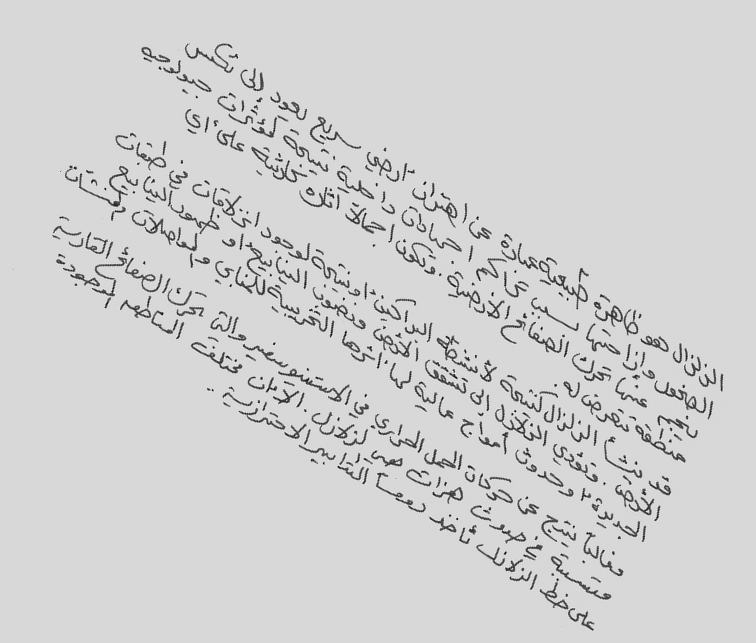 الزلزال هو ظاهرة طبيعية عبارة عن اهتزاز أرضي سريع يعود إلى تكسر
الصخور وإزاحتها بسبب تراكم اجهادات داخلية نتيجة لمؤثرات جيولوجيه
ينجم عنها تحرك الصفائح الأرضية. وتكون اجمالا اثاره كارثية على أي
منطقة تتعرض له.
قد ينشأ الزلزال كنتيجة لأنشطة البراكين، أو نتيجة لوجود انزلاقات في طبقات
الأرض. وتؤدي الزلازل إلى تشقق الأرض ونضوب الينابيع، أو ظهور الينابيع
الجديدة، وحدوث أمواج عالية لها أثرها التخريبية للمباني والمواصلات والمنشآت
وغالبا ينتج عن حركات الحمل الحراري في الاستينوسفير والتي تحرك الصفائح القارية
متسببة في حدوث هزات هي الزلازل. الآن مختلف المناطق الموجودة
على خط الزلازل تأخذ دوماً التدابير الاحترازية..